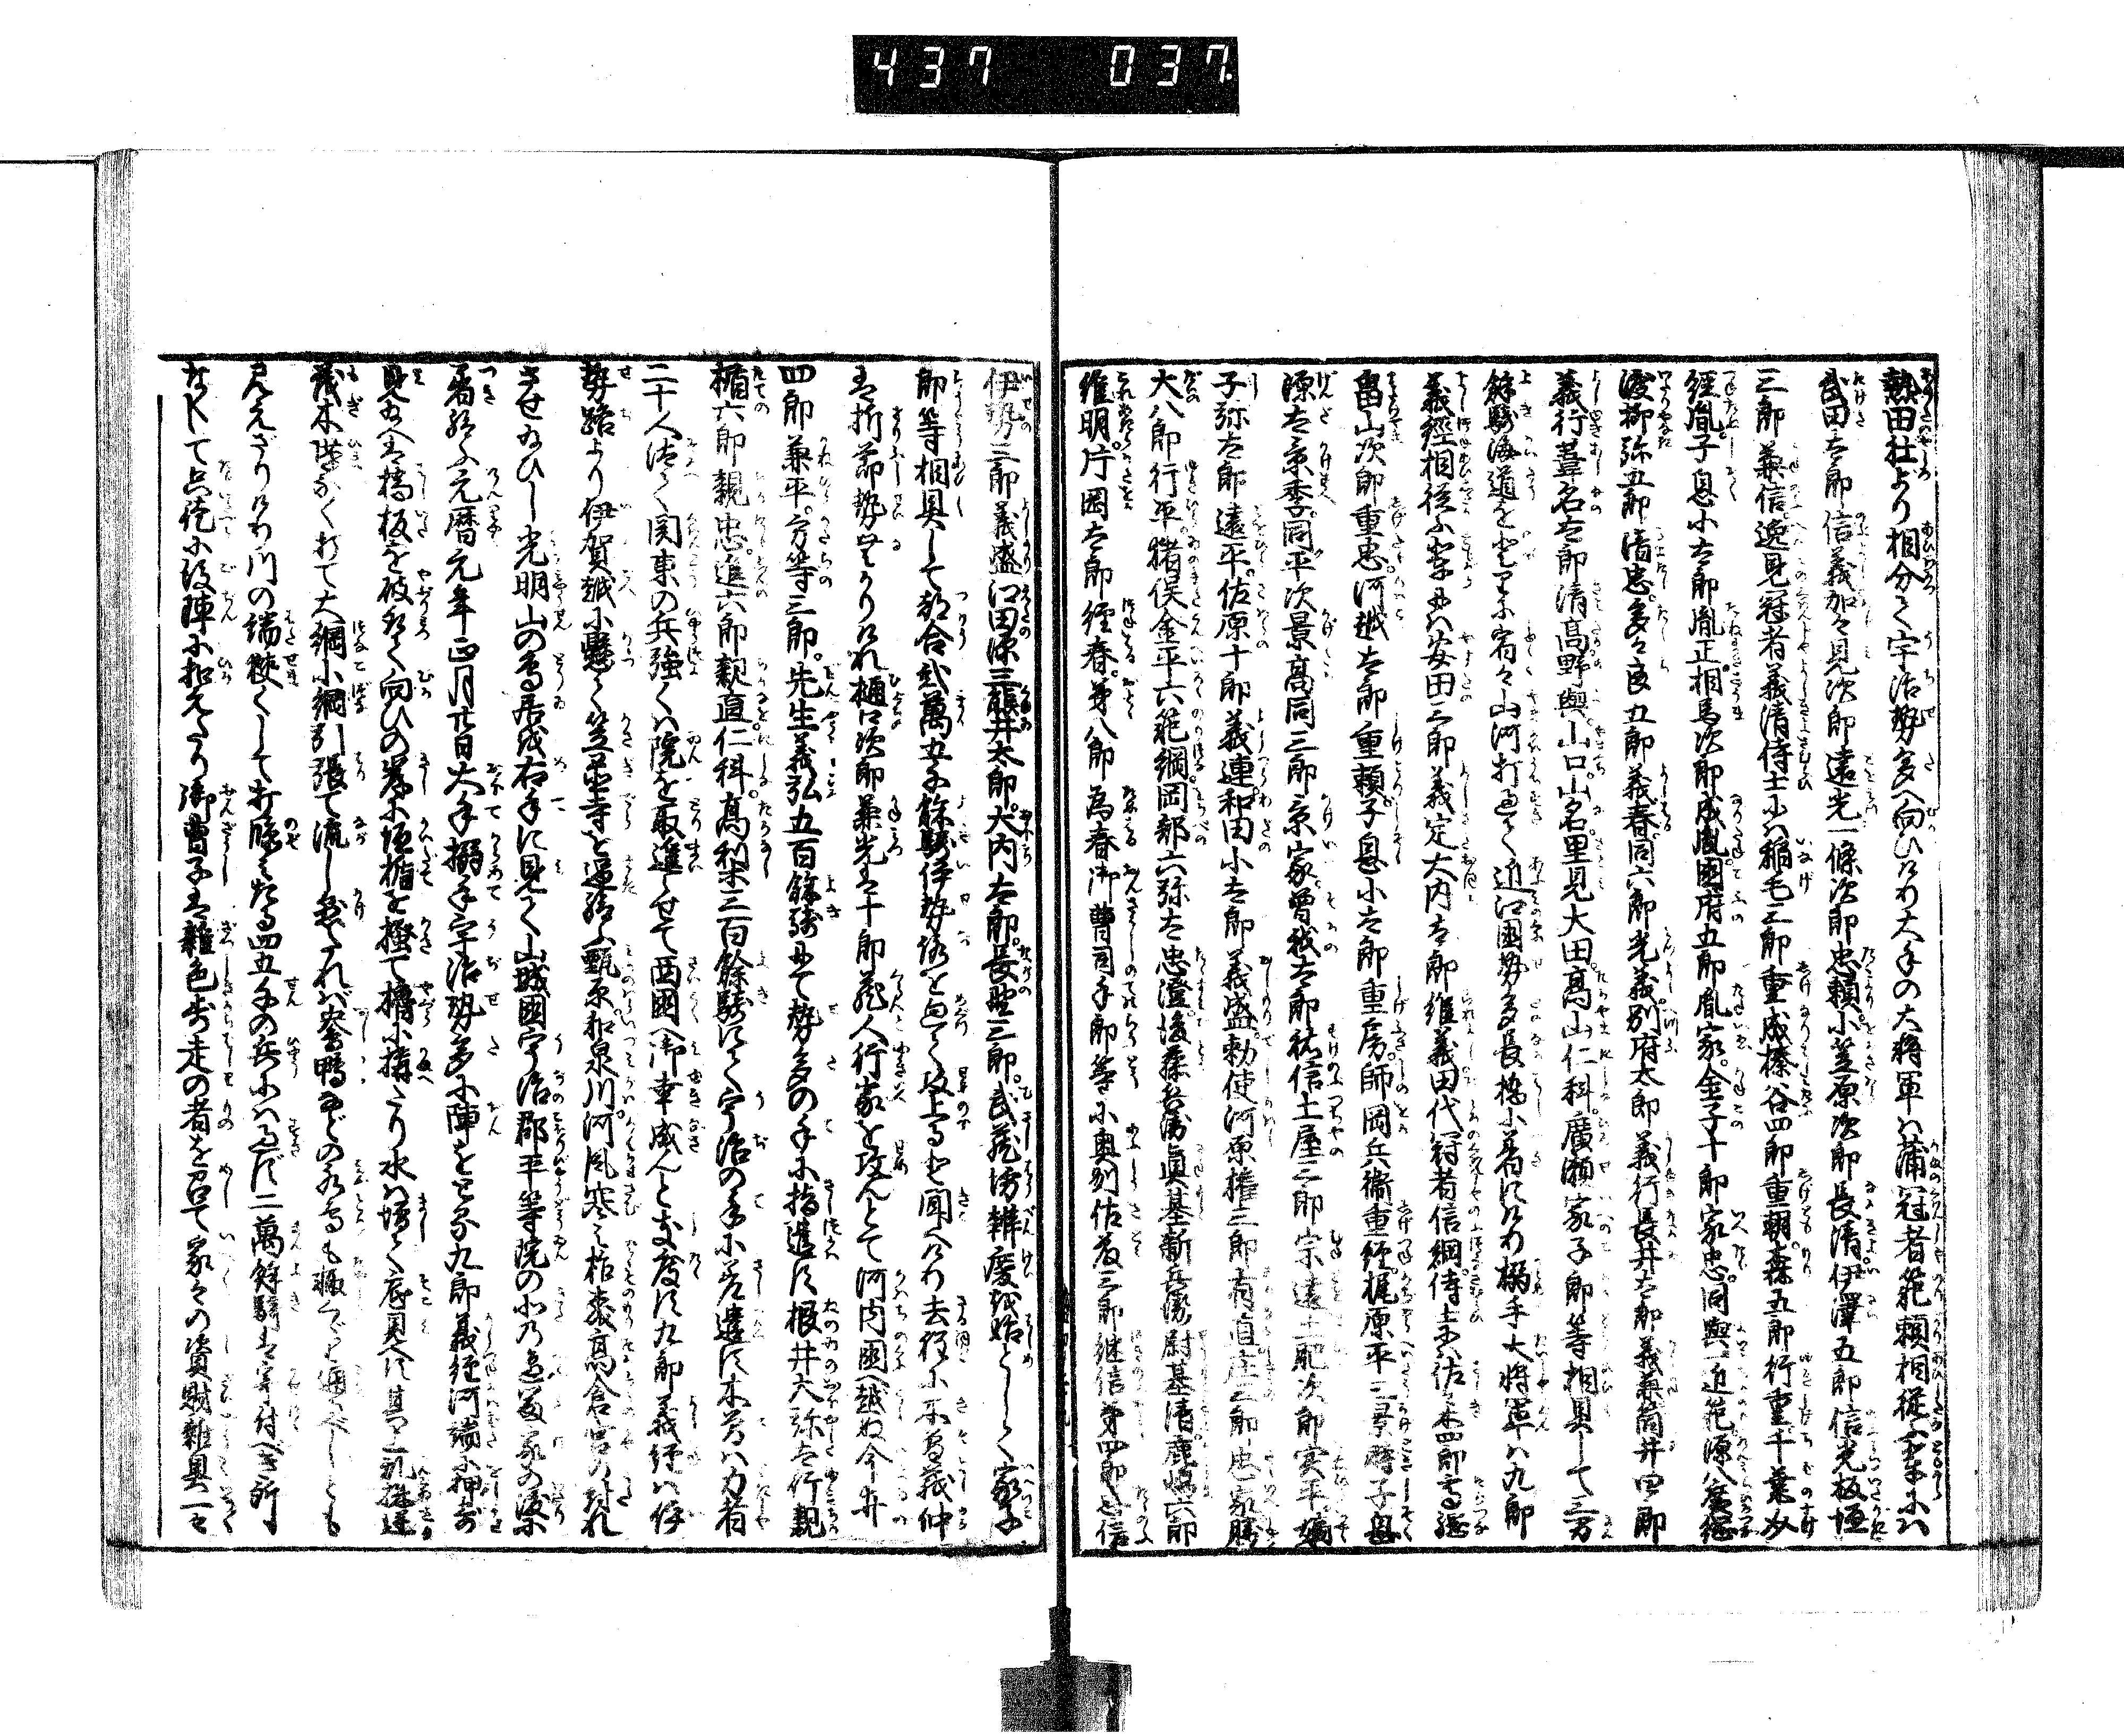 437 037
熱田社より相分て宇治勢多へ向ひけり大手の大将軍ハ蒲冠者範頼相従ふ輩にハ
武田太郎信義加々見次郎遠光一條次郎忠頼小笠原次郎長清伊澤五郎信光板垣
三郎兼信逸見冠者義清侍士にハ稲毛三郎重成榛谷四郎重朝森五郎行重千葉介
経胤子息小太郎胤正相馬次郎成胤國府五郎胤家金子十郎家忠同與一近範源八廣綱
渡柳弥五郎清忠多々良五郎義春同六郎光義別府太郎義行長井太郎義兼筒井四郎
義行葦名太郎清高野與山口山名里見大田高山仁科廣瀬家子郎等相具して三万
餘騎海道を上りに宿々山河打過て近江國勢多長橋に着にけり搦手大将軍ハ九郎
義經相従ふ輩にハ安田三郎義定大内太郎維義田代冠者信綱侍士にハ佐々木四郎高綱
畠山次郎重忠河越太郎重頼子息小太郎重房師岡兵衞重経梶原平三景時子息
源太景季同平次景高同三郎景家曽我太郎祐信土屋三郎宗遠土肥次郎実平嫡
子弥太郎遠平佐原十郎義連和田小太郎義盛勅使河原権三郎有直庄三郎忠家勝
大八郎行平猪俣金平六範綱岡部六弥太忠澄後藤兵衛真基新兵衛尉基清鹿嶋六郎
維明片岡太郎経春弟八郎為春御曹司手郎等に奥刕佐藤三郎継信弟四郎忠信
伊勢三郎義盛江田源三熊井太郎大内太郎長野三郎武蔵坊辨慶越始として家子
郎等相具して都合弐萬五千餘騎伊勢路を廻て攻上ると聞へけり去程に木曽義仲
は折節勢ぞなかりけれ樋口次郎兼光は十郎蔵人行家を攻んとて河内國へ越ぬ今井
四郎兼平方等三郎先生義弘五百餘騎にて勢多の手に指遣はす根井大弥太行親
楯六郎親忠進六郎親直仁科高梨三百餘騎にて宇治の手に差遣はす木曽ハ力者
二十人洗て関東の兵強くハ院を取進らせて西國へ御幸成んと支度す九郎義経ハ伊
勢路より伊賀越に懸て笠置寺を通給ふ甁原和泉川河風寒ミ柏森高倉宮の討れ
させ給ひし光明山の鳥居越右手に見て山城國宇治郡平等院の北の邊冨家の渡に
着給ふ元暦元年正月廿日大手搦手宇治勢多に陣をとる九郎義経河端に押寄
見給へは橋板を破却て向ひの岸に垣楯を掻て櫓に搆たり水ハ増て底見へす其上乱株逆
茂木隙なく打て大綱小綱引張て流し懸たれハ鴛鴨などの水鳥も輙くぐり通べしとも
見えざりけり川の端狭くして打臨たる四五千の兵にハ過ぎず二萬餘騎は寄付べき所
なくして只徒に後陣に扣えたり御曹子は雑色歩走の者を召て家々の資財雑具一々